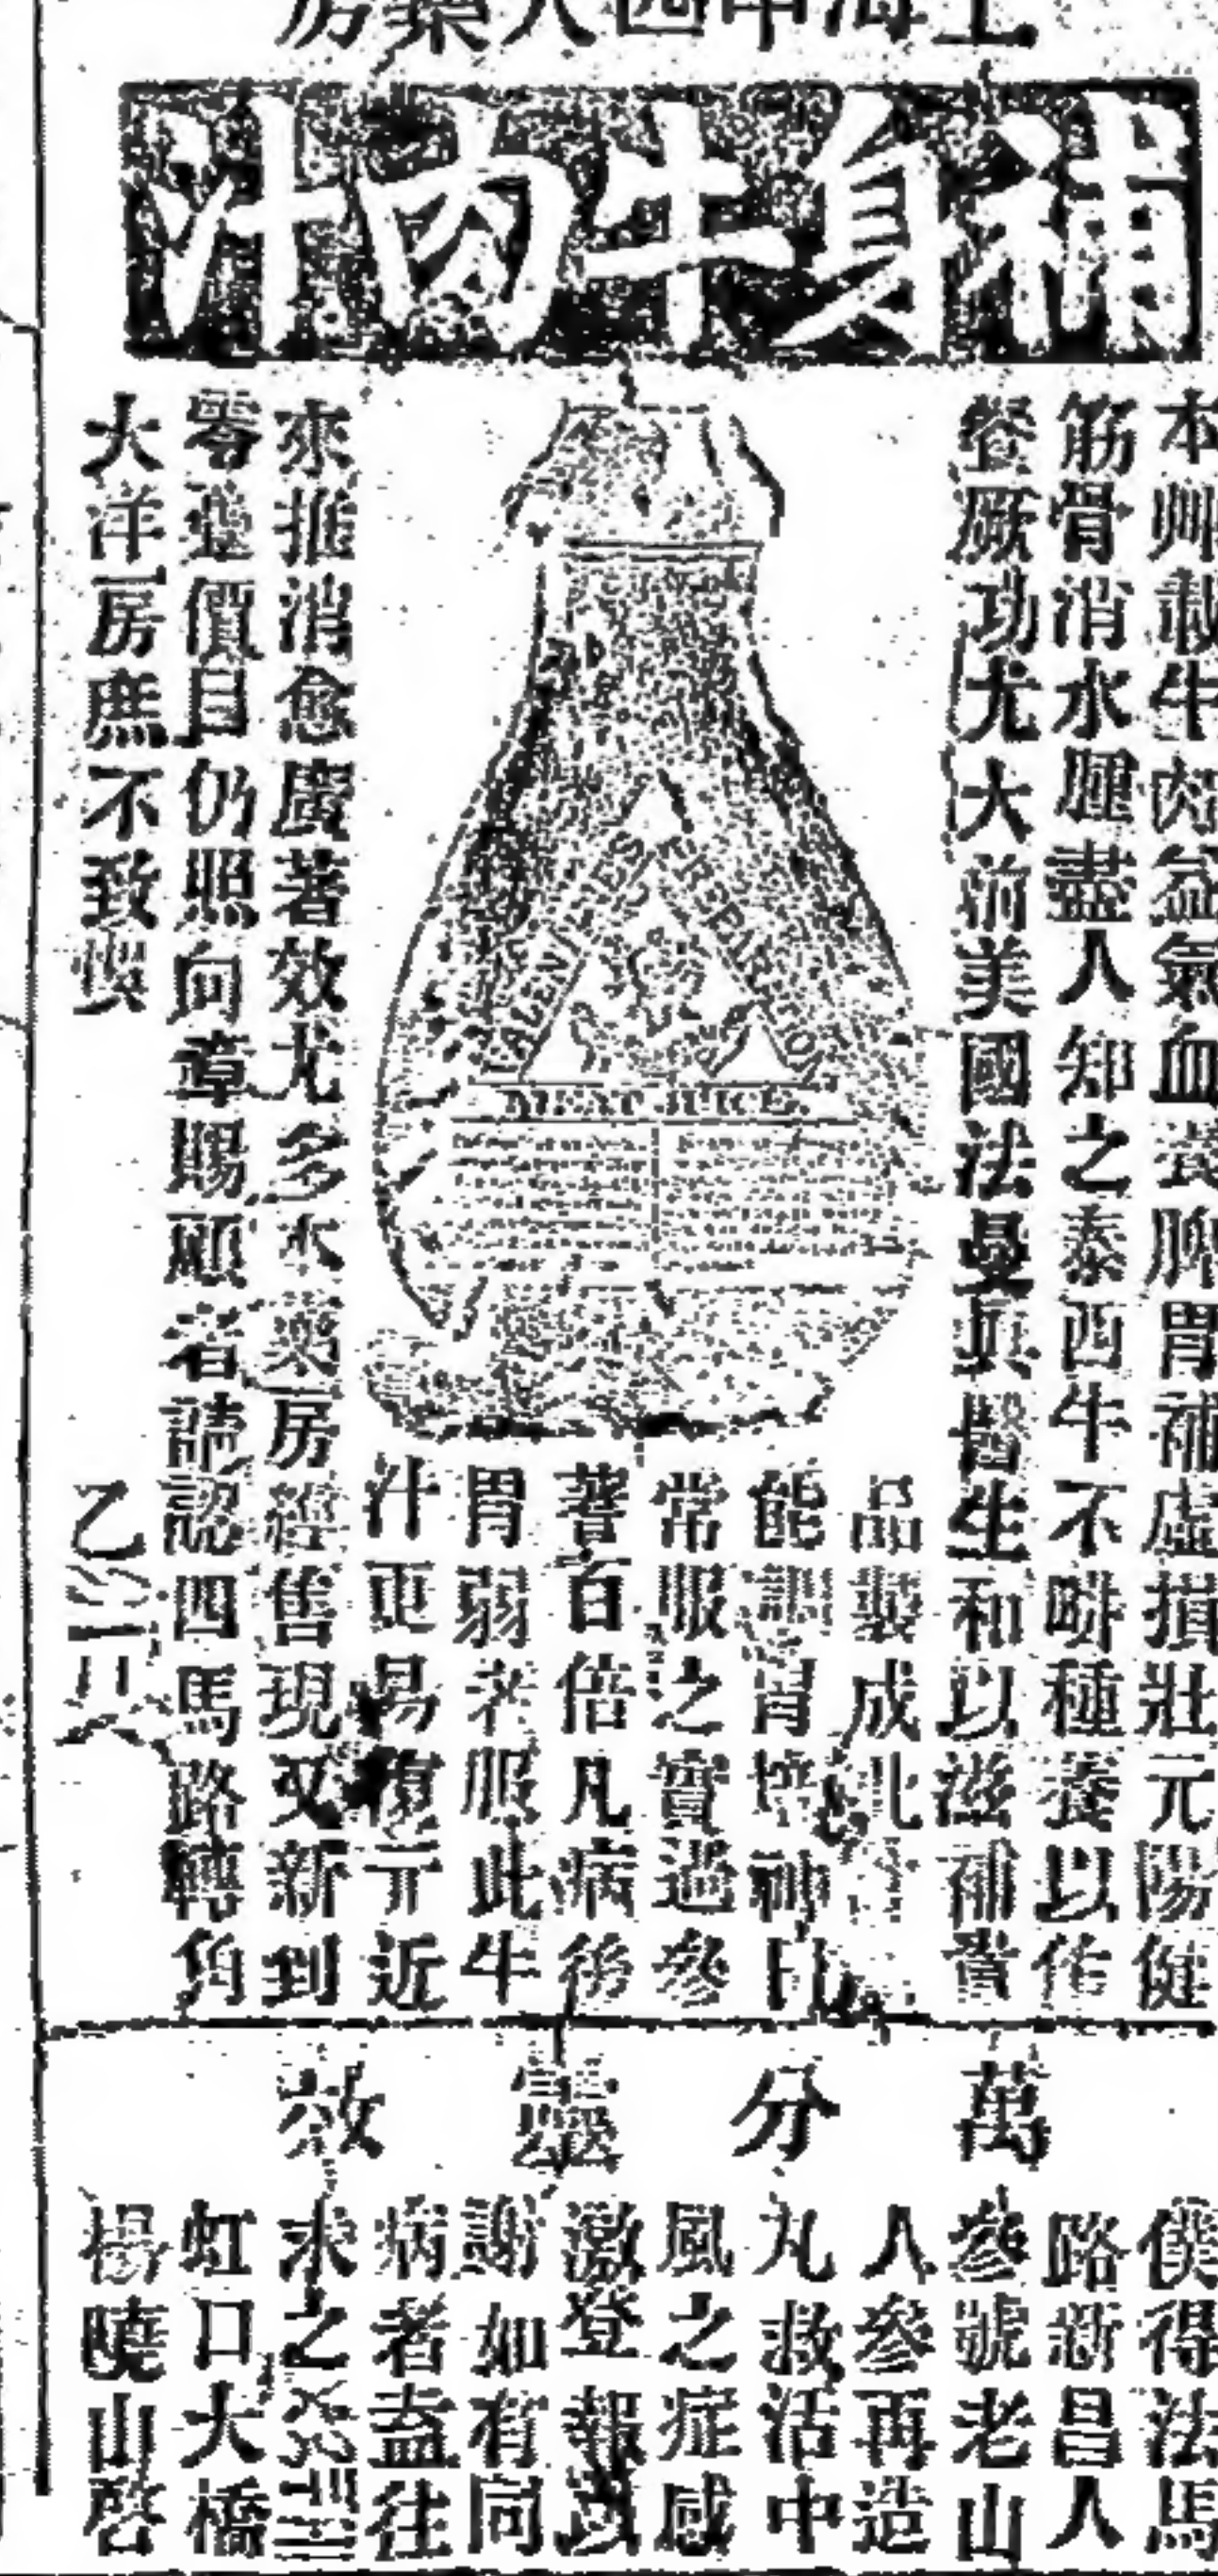 上海中西大藥房
補身牛肉汁
本艸載牛肉益氣血養脾胃補虛損壯元陽健
筋骨消水腫盡人知之泰西牛不畊種養以作
餐厥功尤大前美國法曼真醫生和以滋補貴
品製成此汁
能調胃培神日
常服之實過參
蓍百倍凡病後
胃弱者服此牛
汁更易復元近
來推消愈廣著效尤多本藥房經售現又新到
零躉價目仍照向章賜顧者請認四馬路轉角
大洋房庶不致悞
乙
VALENTINE'S PREPARATION
MEAT-JUICE.
萬分靈效
僕得法馬
路新昌人
參號老山
人參再造
丸救活中
風之症感
激登報以
謝如有同
病者盍往
求之
虹口大橋
楊曉山啓